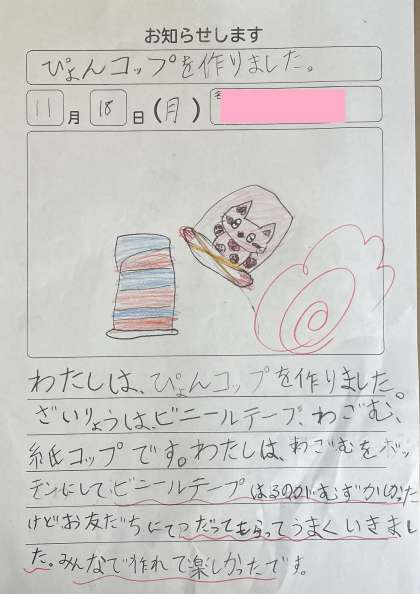 お知らせします
ぴょんコップを作りました。
11月18日(月)
わたしは、ぴょんコップを作りました。
ざいりょうは、ビニールテープ、わごむ、
紙コップです。わたしは、わごむをボッ
モンにして、ビニールテープはるのがむずかしかった
けどお友だちにてつだってもらってうまくいきまし
た。みんなで作れて楽しかったです。